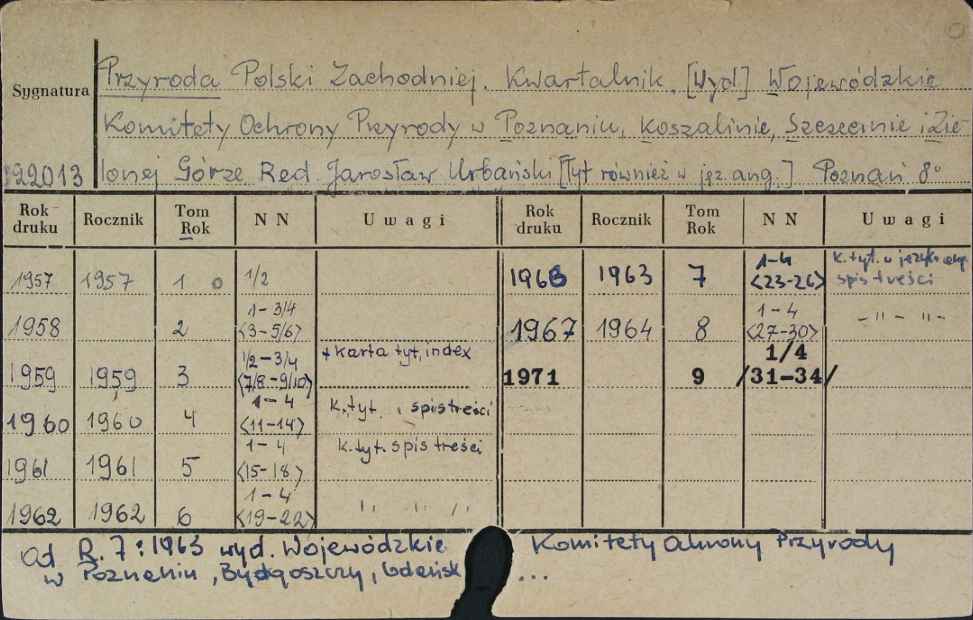 Sygnatura
Przyroda Polski Zachodniej. Kwartalnik. [Wyd] Wojewódzkie
Komitety Ochrony Przyrody w Poznaniu, Koszalinie, Szczecinie i Zie-
lonej Górze Red. Jarosław Urbański [Tyt również w jęz. ang.] Poznań 8°
22013
Rok druku Rocznik Tom Rok N N Uwagi Rok druku Rocznik Tom Rok N N Uwagi
1957 1957 1 o 1/2
1958 2 1-3/4 <3-5/6>
1959 1959 3 1/2-3/4 <7/8-9/10> + karta tyt, index
1960 1960 4 1-4 <11-14> k. tyt. i spis treści
1961 1961 5 1-4 <15-18> k. tyt. spis treści
1962 1962 6 1-4 <19-22> " " "
1963 7 1-4 <23-26> k. tyt. w język. ang. spis treści
1967 1964 8 1-4 <27-30> -"- "-
1971 9 1/4 /31-34/
Od R. 7: 1963 wyd. Wojewódzkie Komitety Ochrony Przyrody
w Poznaniu, Bydgoszczy, Gdańsk ...